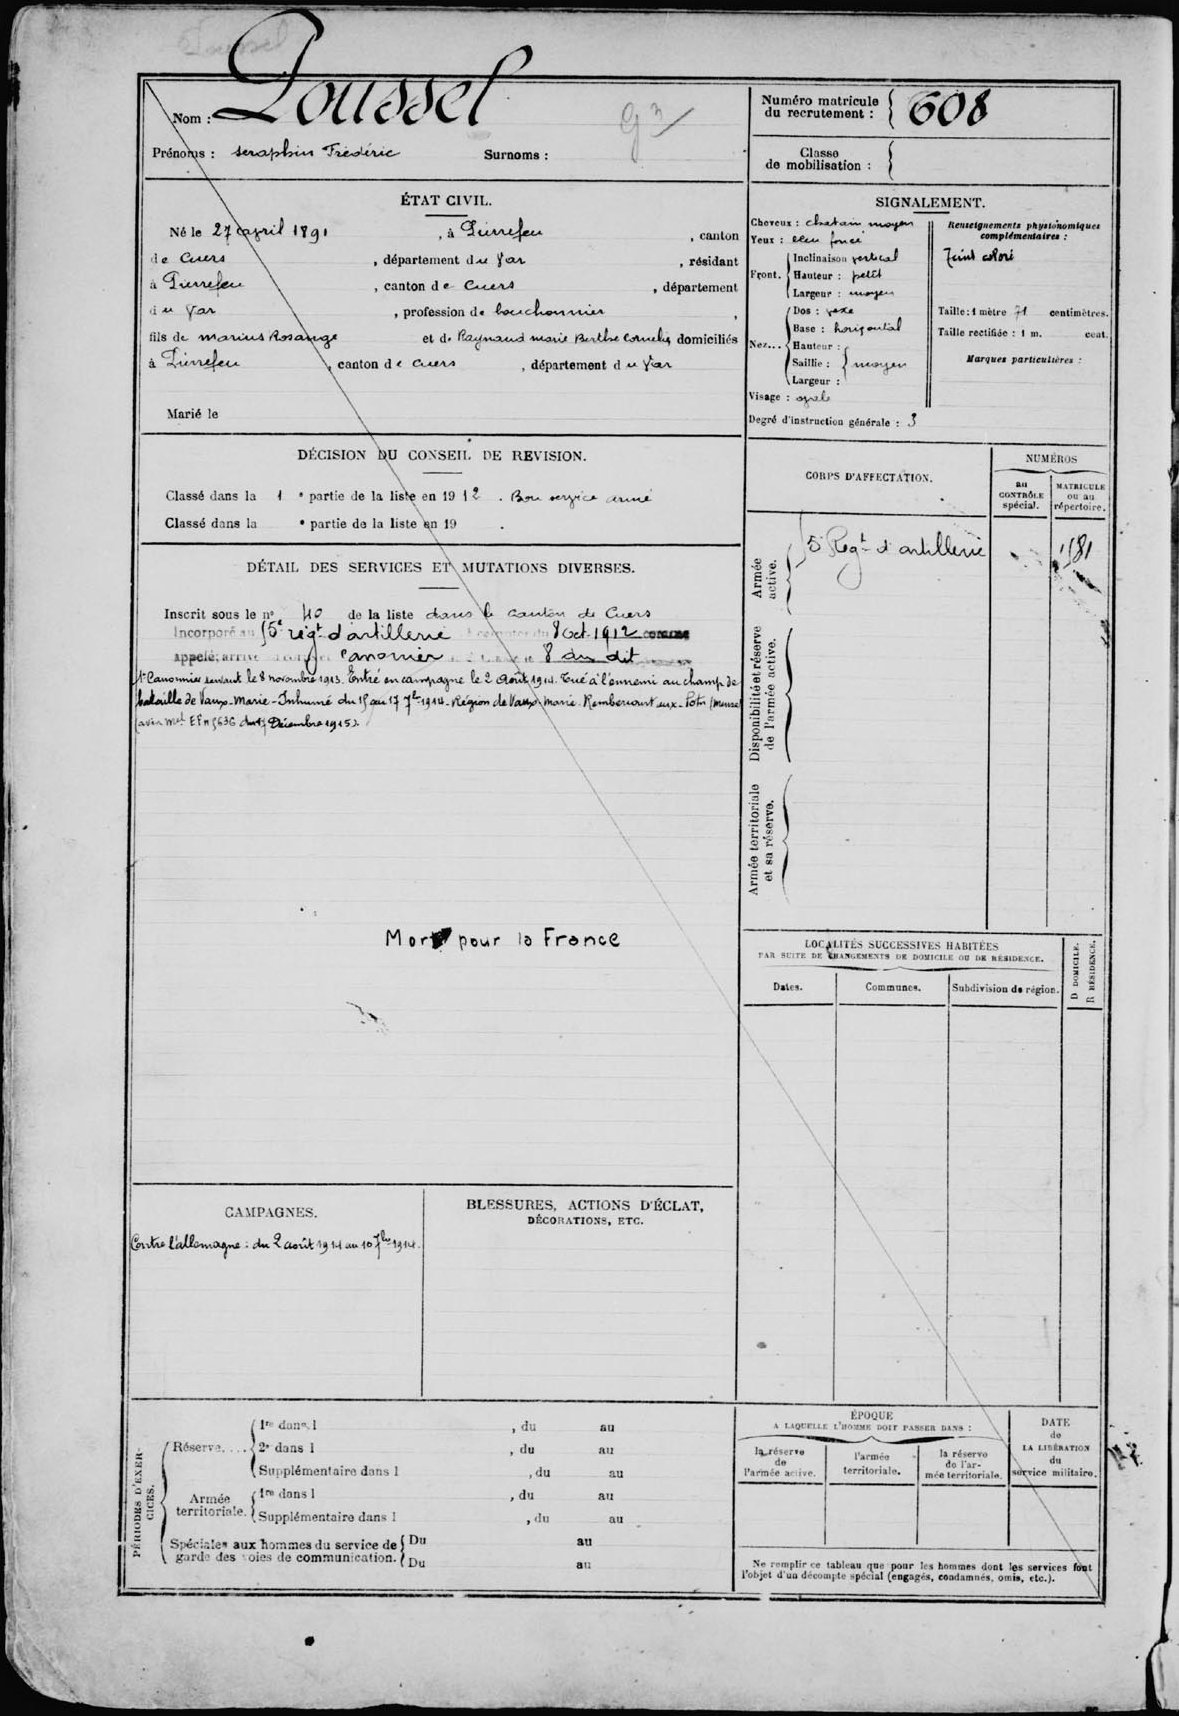 Nom : Poussel
Prénoms : seraphin Frédéric Surnoms :
Numéro matricule du recrutement : 608
Classe de mobilisation :
ÉTAT CIVIL.
Né le 27 april 1891, à Pierrefeu, canton
de Cuers, département du Var, résidant
à Pierrefeu, canton de Cuers, département
du Var, profession de bouchonnier,
fils de marius Rosange et de Raynaud marie Berthe domiciliés
à Pierrefeu, canton de Cuers, département du Var
Marié le
SIGNALEMENT.
Cheveux : chatain moyen
Yeux : bleu foncé
Front. Inclinaison vertical
Hauteur : petit
Largeur : moyen
Nez... Dos : vexe
Base : horizontal
Hauteur :
Saillie : moyen
Largeur :
Visage : ovale
Degré d'instruction générale : 3
Renseignements physionomiques complémentaires :
Teint coloré
Taille : 1 mètre 71 centimètres.
Taille rectifiée : 1 m. cent.
Marques particulières :
DÉCISION DU CONSEIL DE REVISION.
Classé dans la 1e partie de la liste en 1912. Bon service armé
Classé dans la e partie de la liste en 19 .
DÉTAIL DES SERVICES ET MUTATIONS DIVERSES.
Inscrit sous le n° 40 de la liste dans le canton de Cuers
Incorporé au 5e régt d'artillerie à compter du 8 Oct. 1912 comme
appelé; arrivé au corps et canonnier le 8 du dit
1er Canonnier servant le 8 novembre 1913. Entré en campagne le 2 Août 1914. Tué à l'ennemi au champ de
bataille de Vaux-Marie - Inhumé du 15 au 17 7bre 1914. Région de Vaux Marie. Rembercourt aux-Pots (Meuse)
(avis Mel EF n 5636 du Décembre 1915).
Mort pour la France
CORPS D'AFFECTATION.
NUMÉROS
au CONTRÔLE spécial.
MATRICULE ou au répertoire.
Armée active.
5 Régt d'artillerie 1581
Disponibilité et réserve de l'armée active.
Armée territoriale et sa réserve.
LOCALITÉS SUCCESSIVES HABITÉES
PAR SUITE DE CHANGEMENTS DE DOMICILE OU DE RÉSIDENCE.
Dates. Communes. Subdivision de région. D DOMICILE. R RÉSIDENCE.
CAMPAGNES.
Contre l'allemagne : du 2 août 1914 au 10 7bre 1914.
BLESSURES, ACTIONS D'ÉCLAT,
DÉCORATIONS, ETC.
PÉRIODES D'EXERCICES.
Réserve.... 1re dans l , du au
2e dans l , du au
Supplémentaire dans l , du au
Armée territoriale. 1re dans l , du au
Supplémentaire dans l , du au
Spéciales aux hommes du service de garde des voies de communication. Du au
Du au
ÉPOQUE
A LAQUELLE L'HOMME DOIT PASSER DANS :
la réserve de l'armée active.
l'armée territoriale.
la réserve de l'armée territoriale.
DATE de LA LIBÉRATION du service militaire.
Ne remplir ce tableau que pour les hommes dont les services font
l'objet d'un décompte spécial (engagés, condamnés, omis, etc.).